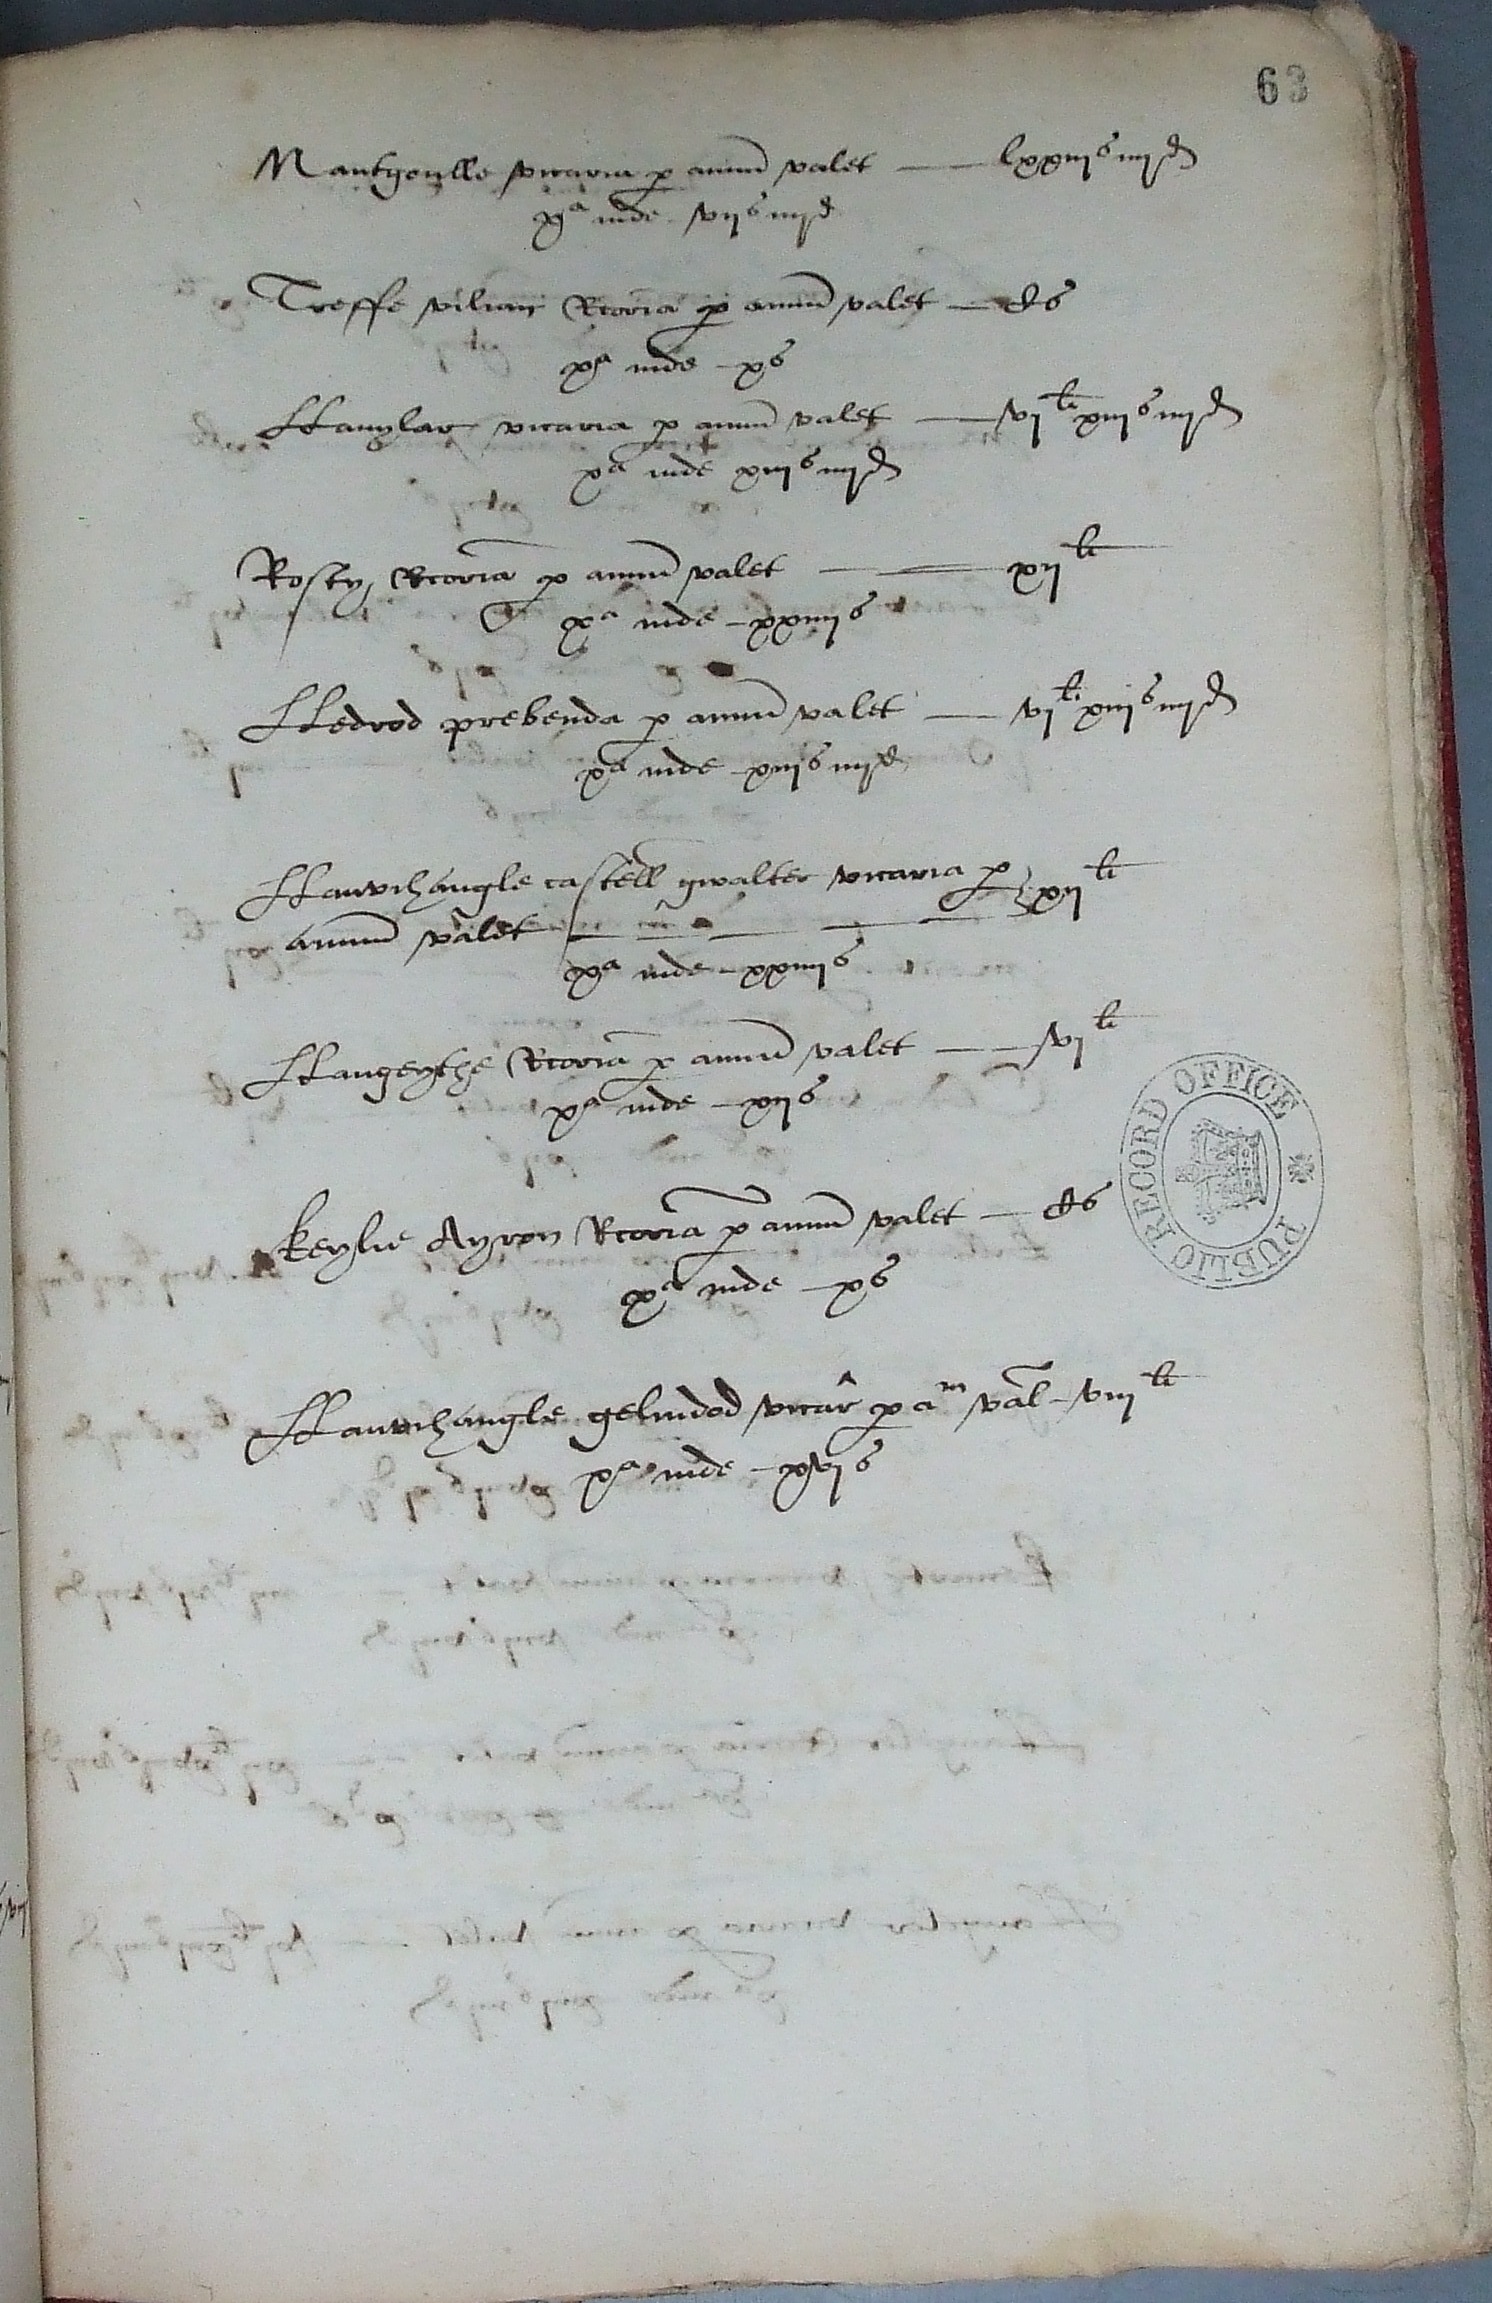 63
Nantgonlle vicaria p annũ valet — lxxiijs iiijd
xa inde vijs iiijd
Treffe vilian Rcoria p annũ valet — Cs
xa inde – xs
llanylar vicaria p annũ valet — vjli xiijs iiijd
xa inde xiijs iiijd
Rosty, Rcoria p annũ valet — xijli
xa inde – xxiiijs
lledrod prebenda p annũ valet — vjli xiijs iiijd
xa inde – xiijs iiijd
llanvihangle castell gwalter vicaria p
annũ valet — xijli
xa inde – xxiiijs
llangeythe Rcoria p annũ valet — vjli
xa inde – xijs
keylie Ayron Rcoria p annũ valet — Cs
xa inde – xs
llanvihangle gelindod vicar p am val – viijli
xa inde – xvjs
PUBLIC RECORD OFFICE